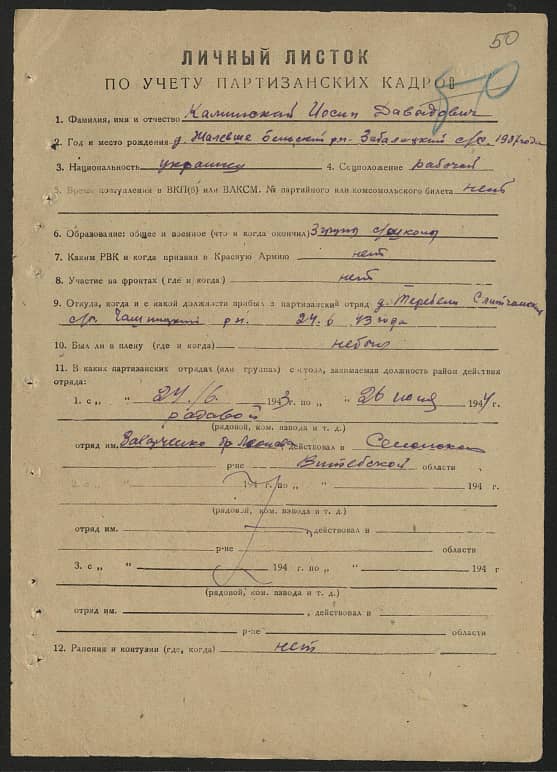 50
ЛИЧНЫЙ ЛИСТОК
ПО УЧЕТУ ПАРТИЗАНСКИХ КАДРОВ
50
1. Фамилия, имя и отчество Калинский Иосип Давыдович
2. Год и место рождения д. Бельский рн. с/с. 1907 года
3. Национальность украинец 4. Соцположение рабочей
5. Время поступления в ВКП(б) или ВЛКСМ. № партийного или комсомольского билета нет
6. Образование: общее и военное (что и когда окончил) 3 группы
7. Каким РВК и когда призван в Красную Армию нет
8. Участие на фронтах (где и когда) нет
9. Откуда, когда и с какой должности прибыл в партизанский отряд д. Теребени
с/с. Чашницкий рн. 24.6 43 года
10. Был ли в плену (где и когда) небыл
11. В каких партизанских отрядах (или группах) с и занимаемая должность район действия
отряда:
1. с „ “ 24/6. 1943 г. по „ “ 26 июня 1944 г.
радовой
(рядовой, ком. взвода и т. д.)
отряд им. бр. действовал в
р-не Витебской области
2. с „ “ 194 г. по „ “ 194 г
(рядовой, ком. взвода и т. д.)
отряд им. действовал в
р-не области
3. с „ “ 194 г. по „ “ 194 г
(рядовой, ком. взвода и т. д.)
отряд им. , действовал в
р-не области
12. Ранения и контузии (где, когда) нет